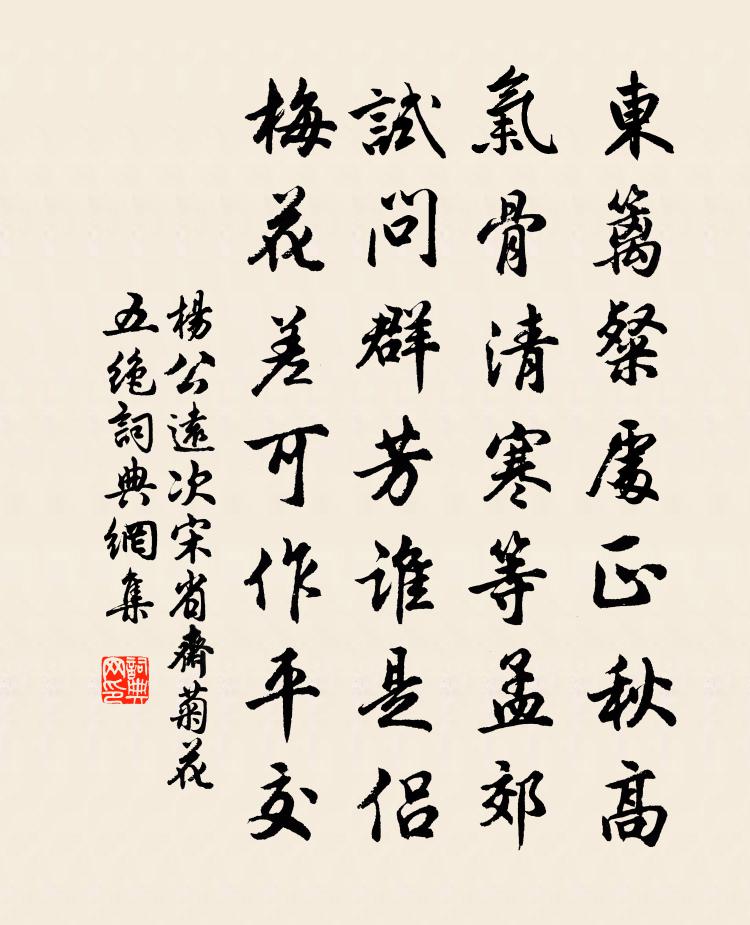 東籬粲處正秋高
氣骨清寒等孟郊
試問群芳誰是侶
梅花差可作平交
楊公遠次宋省齋菊花
五絶詞典網集
詞典
网印